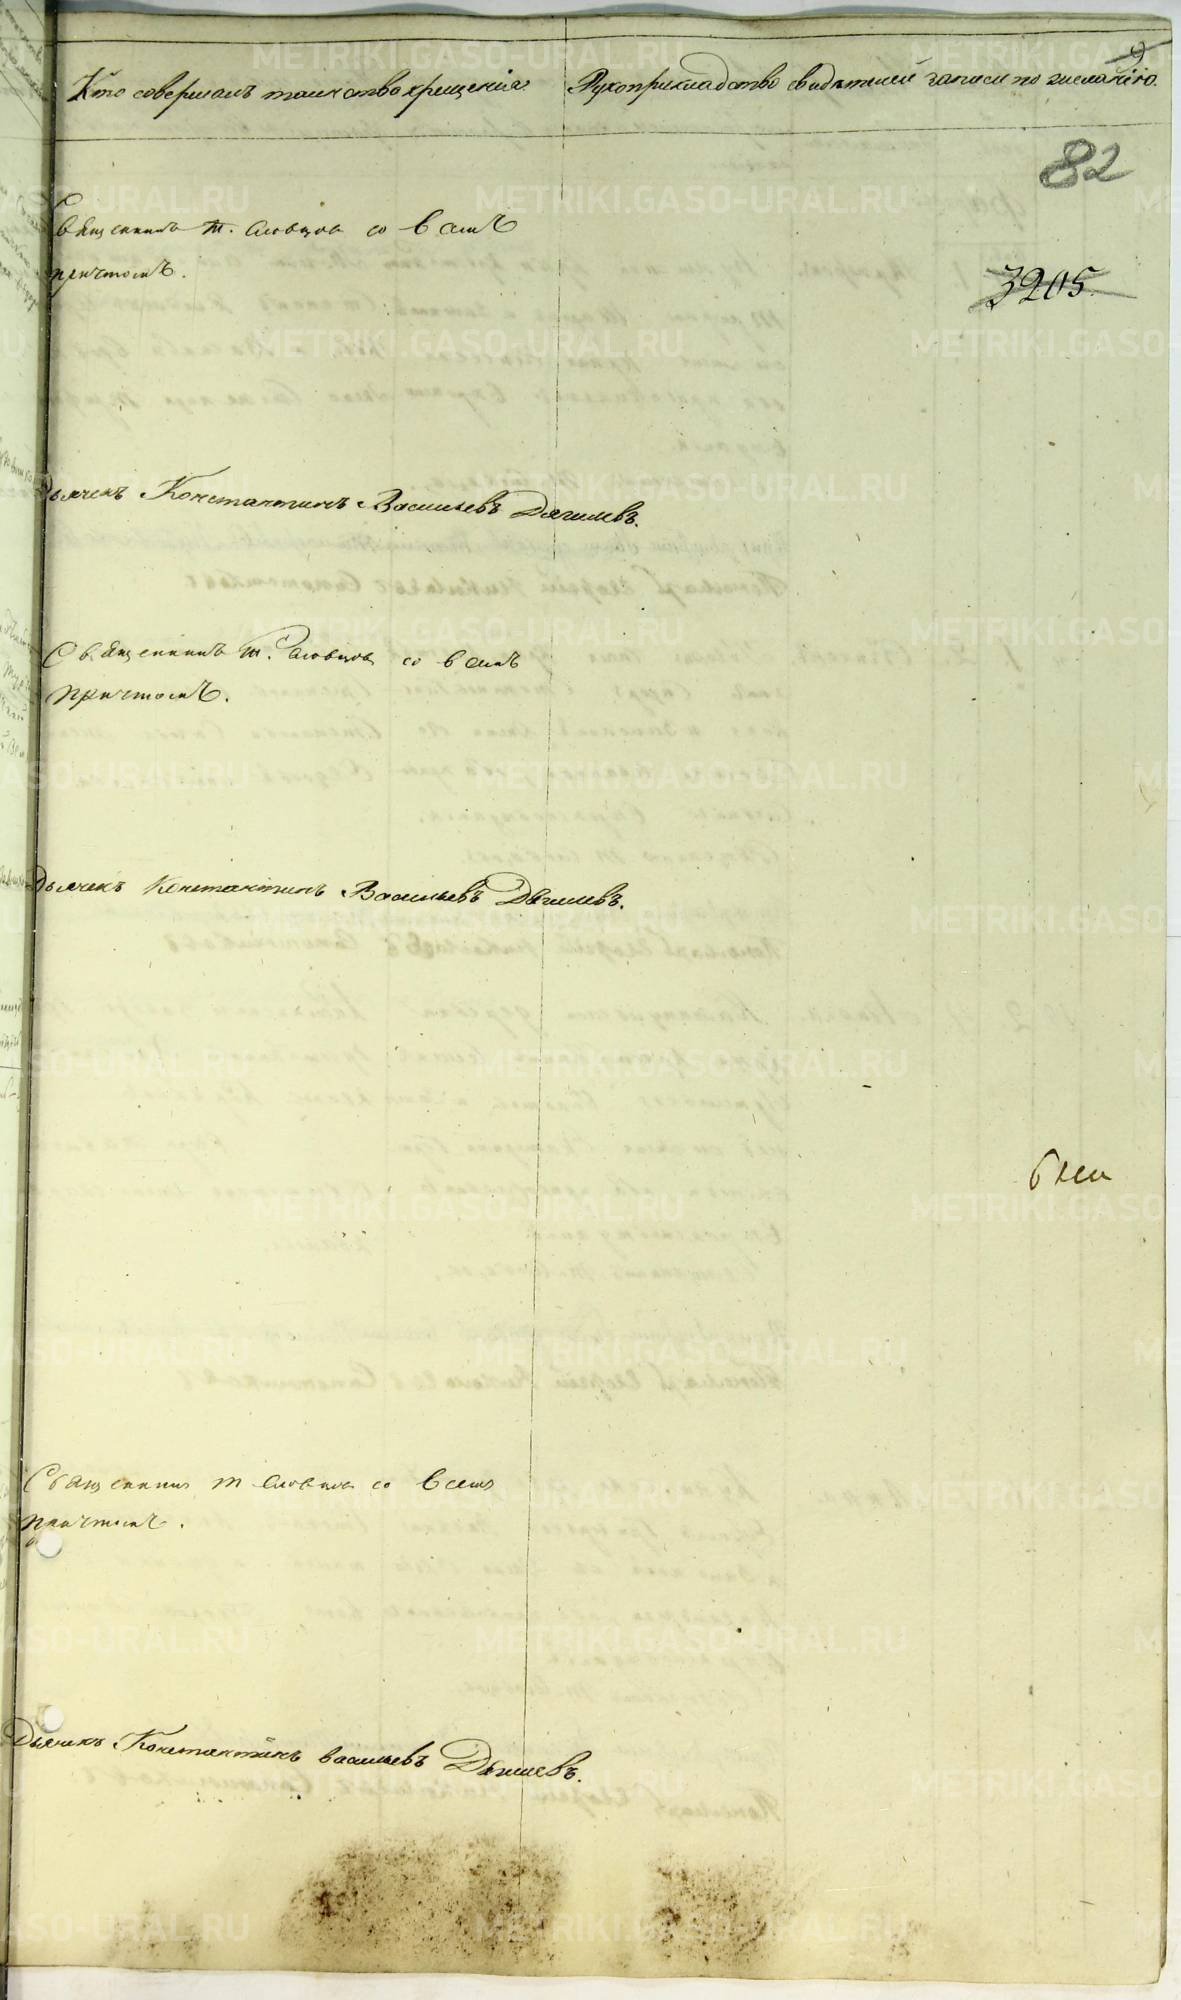 Кто совершалъ таинство крещенія
Рукоприкладство свидѣтелей записи по желанію.
82
3205.
Священникъ Т. Словцовъ со всѣмъ
причтомъ.
Дьячекъ Константинъ Васильевъ Дягилевъ.
Священникъ Т. Словцовъ со всѣмъ
причтомъ.
Дьячекъ Константинъ Васильевъ Дягилевъ.
Священникъ Т Словцовъ со всемъ
причтомъ.
Дьячекъ Константинъ Васильевъ Дягилевъ.
METRIKI.GASO-URAL.RU